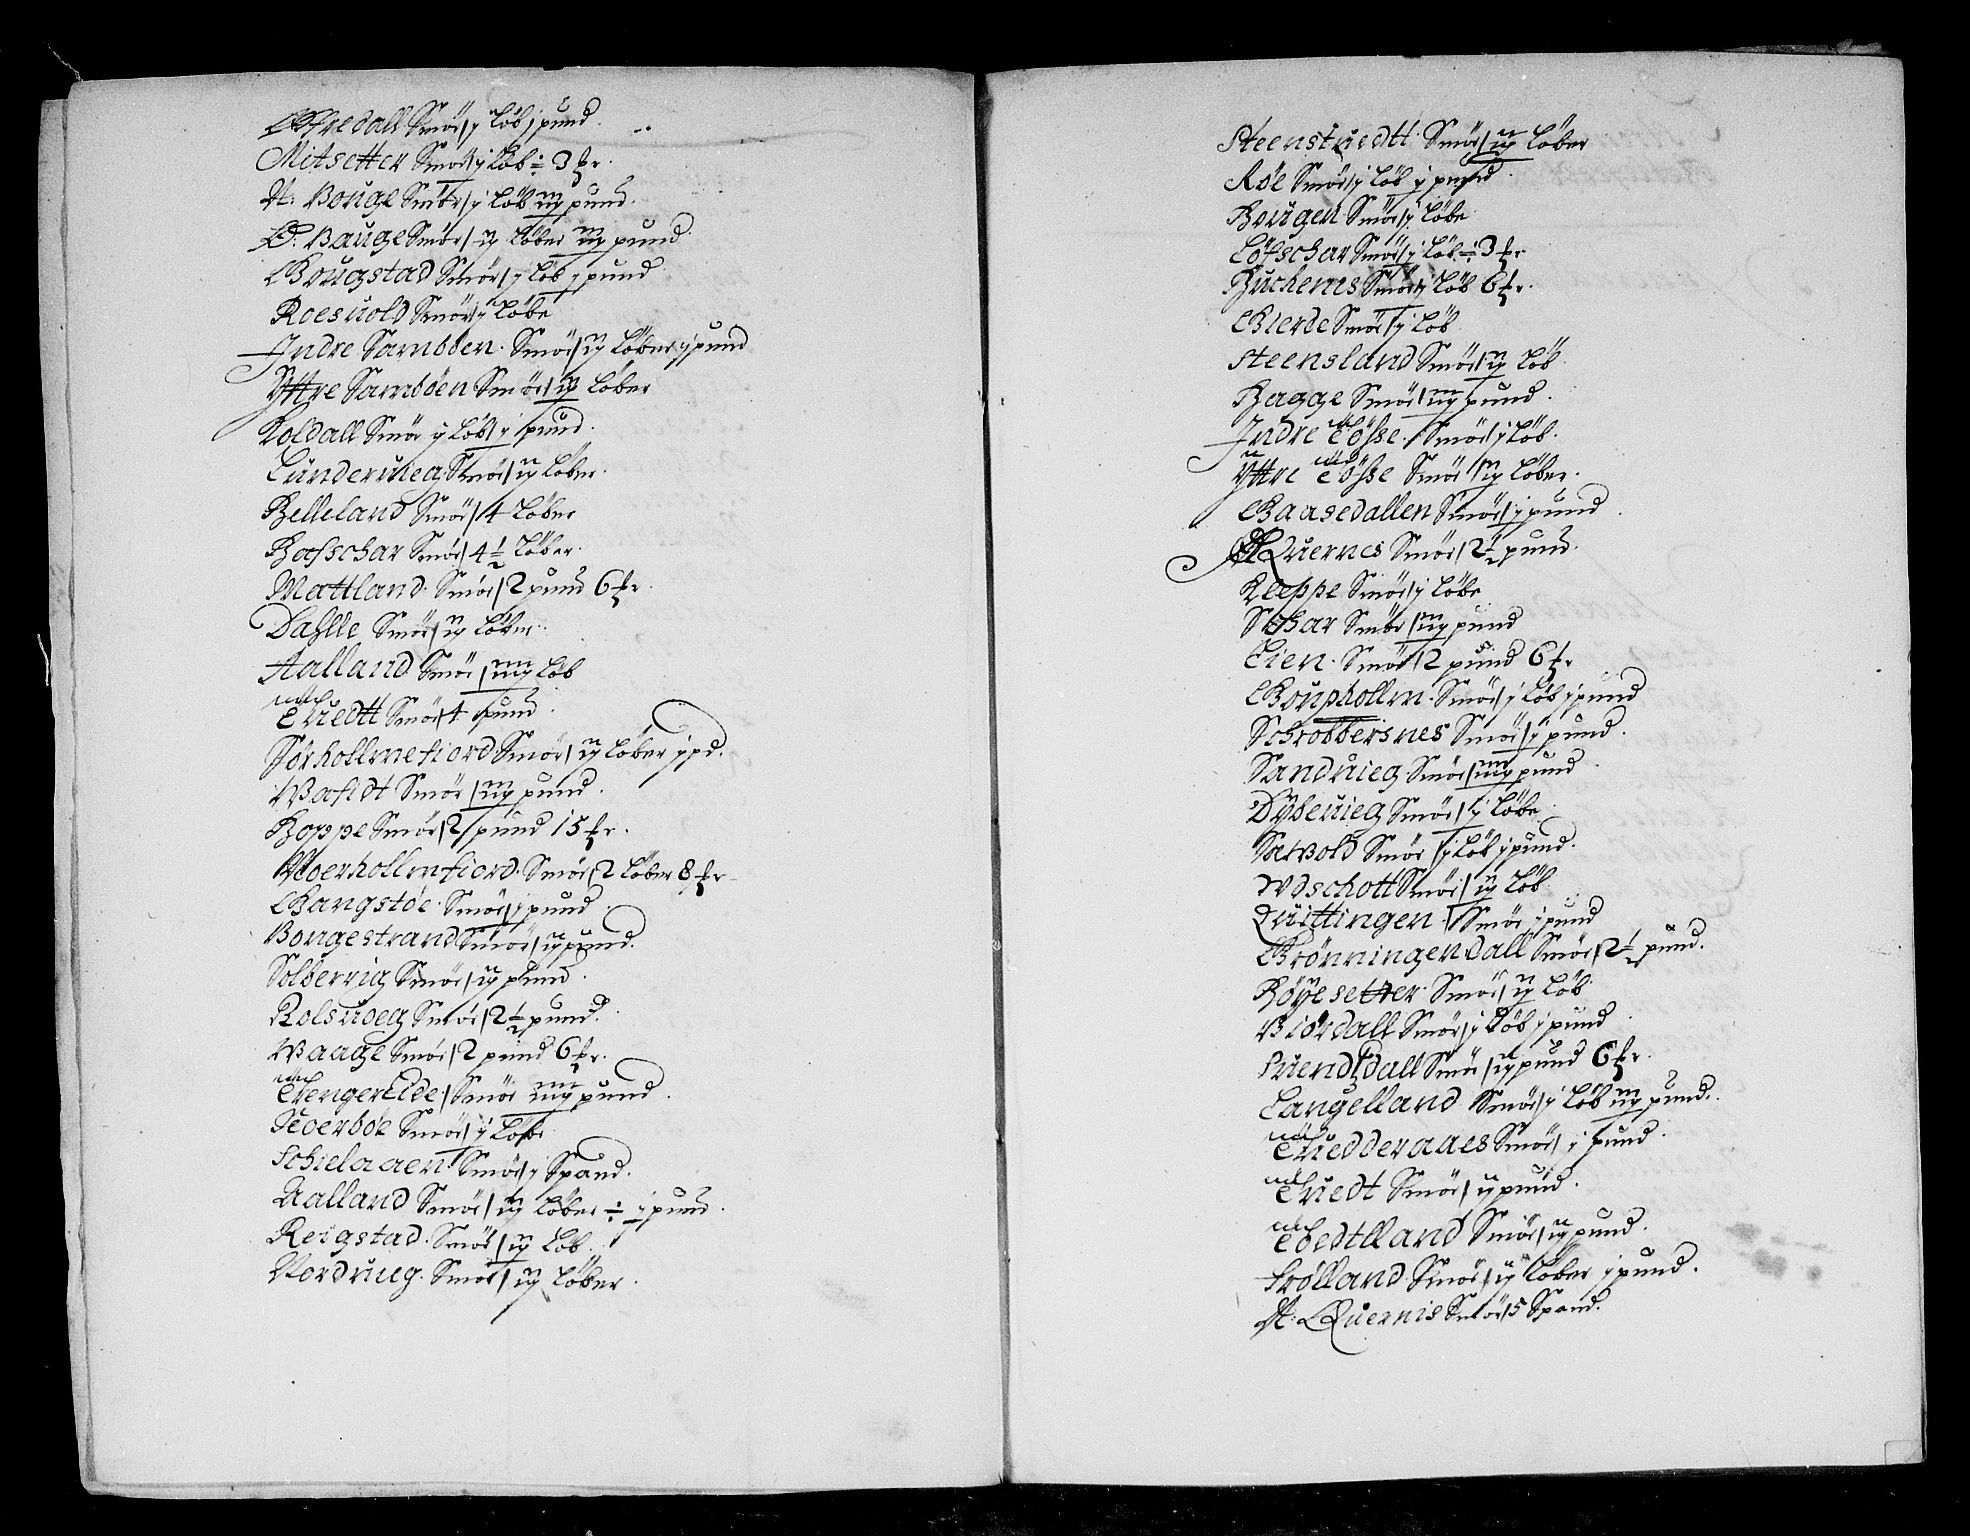 Øfredall Smör j löb j pund
Mitsetter Smör j löb ÷ 3 mr.
N: Bouge Smör j löb iij pund.
Ø: Bauge Smör ij löber iij pund
Bougstad Smör j löb j pund
Roesuold Smör j löbe
Indre Samböen. Smör ij löber j pund
Yttre Samböen Smör ij löber
Koldall Smör ij löb j pund.
Lunderuieg Smör ij löber.
Helleland Smör 4 löber
Hafschar Smör 4½ löber.
Mattland. Smör 2 pund 6 mr.
Dahlle Smör ij löber
Aalland Smör iiij löb
Tuedtt Smör 4 pund.
Sörhollmefiord Smör ij löber j pd.
Wafidt Smör iij pund.
Hoppe Smör 2 pund 15 mr.
Noerhollmfiord. Smör 2 löber 8 mr
Bangstöe. Smör j pund.
Bougestrand Smör ij pund.
Solberrig Smör ij pund.
Rolsuoeg Smör 2½ pund.
Waage Smör 2 pund 6 mr.
Tengereide Smör iiij pund.
Noerböe Smör j löbe
Schielaaen Smör j Spand.
Aalland Smör ij löber ÷ j pund.
Reigstad. Smör ij löb.
Norduieg. Smör ij löber.
Steenstuedtt. Smör ij löber
Röe Smör j löb j pund.
Hougen Smör j löbe
Löfschar Smör j löb ÷ 3 mr
Huchenes Smör j löb 6 mr.
Gierde Smör j löb
Steensland Smör ij löb
Hagge Smör iij pund.
Indre Tösse. Smör j löb.
Yttre Tösse Smör ij löber.
Baasedallen Smör j pund.
Ø Quernes Smör 2½ pund.
Kleppe Smör j löbe
Schar Smör iij pund
Lien. Smör 2 pund 6 mr
Gouphollm. Smör j löb j pund
Schrobbersnes Smör j pund.
Sanduieg Smör iiij pund.
Dybeuieg Smör j löbe
Sætvold Smör j löb j pund.
Wdschott Smör ij löb
Quittingen. Smör j pund
Grönningendall Smör 2½ pund.
Höyesetter. Smör ij löb
Biördall Smör j löb j pund.
Suendsdall Smör ij pund 6 mr.
Langelland Smör j löb iij pund.
Tuedderaaes Smör j pund.
Tuedt Smör ij pund.
Toedtland Smör ij pund.
Frölland Smör ij löber j pund.
N: Quernis Smör 5 Spand.